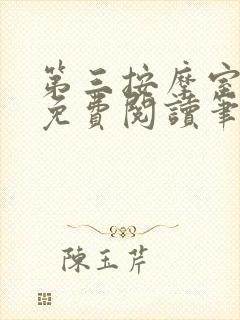 第三按摩室
免費閱讀筆
陳玉芹